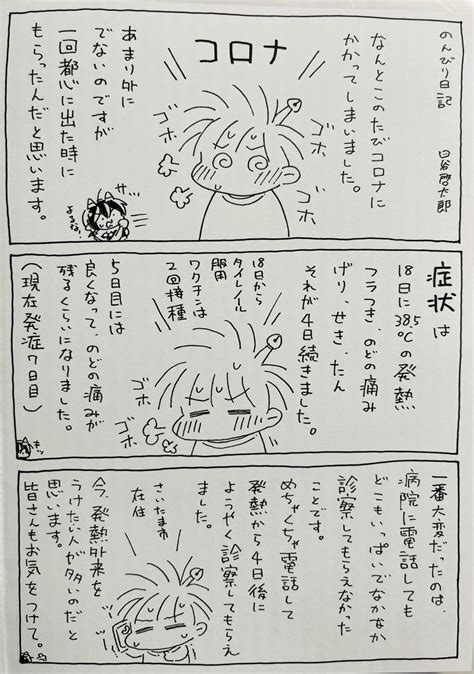 のんびり日記
四谷啓太郎
コロナ
なんとこのたびコロナに
かかってしまいました。
ゴホ
ゴホ
ゴホ
ゴホ
あまり外に
でないのですが
一回都心に出た時に
もらったんだと思います。
サッ
よるな!
症状は
18日に38.5℃の発熱
フラつき、のどの痛み
げり、せき、たん
それが4日続きました。
18日から
タイレノール
服用
ワクチンは
2回接種
ゴホ
ゴホ
5日目には
良くなって、のどの痛みが
残るくらいになりました。
(現在発症7日目)
一番大変だったのは、
病院に電話しても
どこもいっぱいでなかなか
診察してもらえなかった
ことです。
めちゃくちゃ電話して
発熱から4日後に
ようやく診察してもらえ
ました。
さいたま市
在住
今、発熱外来を
うけたい人が多いのだと
思います。
皆さんもお気をつけて。